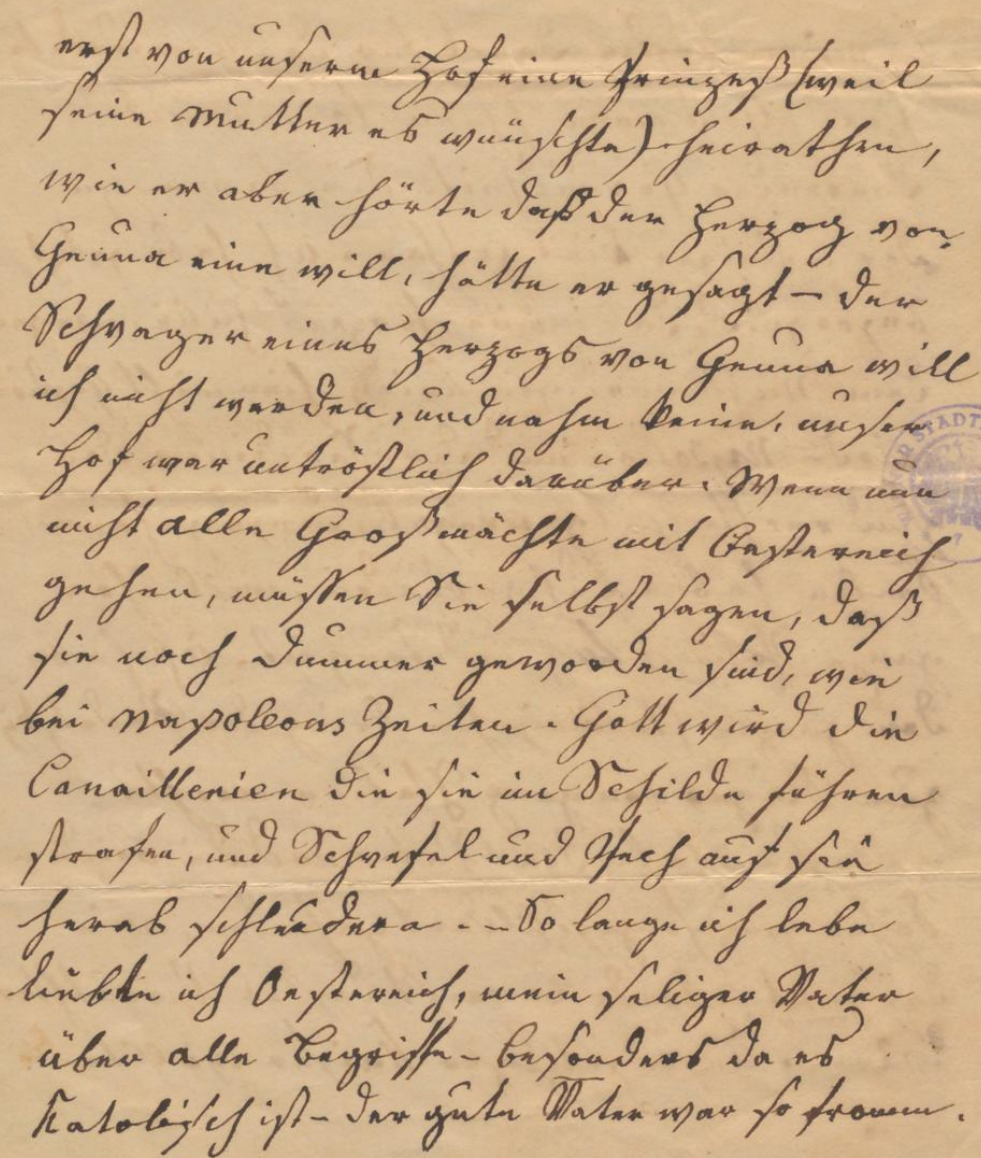 erst von unserm Hof eine Prinzeß (weil
seine Mutter es wünschte) heirathen,
wie er aber hörte daß der Herzog von
Genua eine will, hätte er gesagt – der
Schwager eines Herzogs von Genua will
ich nicht werden, und nahm keine, unser
Hof war untröstlich darüber. Wenn nun
nicht alle Großmächte mit Oestereich
gehen, müssen Sie selbst sagen, daß
sie noch dummer geworden sind, wie
bei Napoleons Zeiten. Gott wird die
Canaillerien die sie im Schilde führen
strafen, und Schwefel und Pech auf sie
herab schleudern. – So lange ich lebe
liebte ich Oestereich, mein seliger Vater
über alle Begriffe – besonders da es
Katolisch ist – der gute Vater war so fromm.
STADT